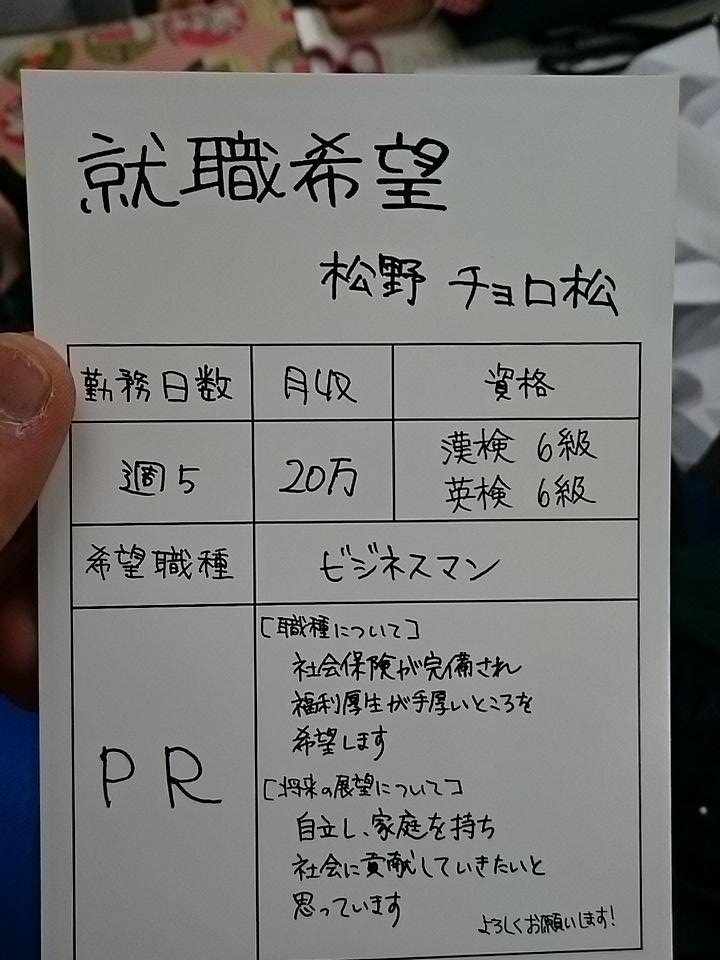 就職希望
松野 チョロ松
勤務日数 月収 資格
週5 20万 漢検 6級
英検 6級
希望職種 ビジネスマン
PR
[職種について]
社会保険が完備され
福利厚生が手厚いところを
希望します
[将来の展望について]
自立し、家庭を持ち
社会に貢献していきたいと
思っています
よろしくお願いします!